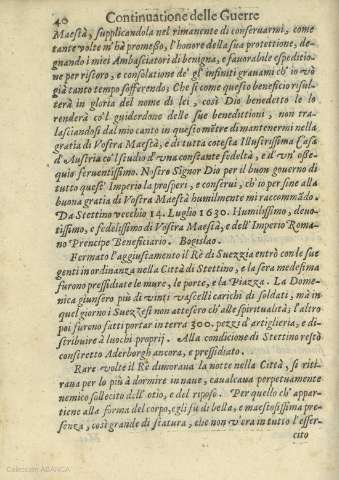 40 Continuatione delle Guerre
Maestà, supplicandola nel rimanente di conseruarmi, come
tante volte m'hà promesso, l'honore della sua protettione, de-
gnando i miei Ambasciatori di benigna, e fauorabile espeditio-
ne per ristoro, e consolatione de gl'infiniti grauami ch'io và
già tanto tempo sofferendo; Che sì come questo beneficio risul-
terà in gloria del nome di lei, così Dio benedetto le lo
renderà co'l guiderdone delle sue beneditioni, non tra-
lasciando sì dal mio canto in questo mẽtre di mantenermi nella
gratia di Vostra Maestà, e di tutta cotesta Illustrissima Casa
d'Austria co'l studio d'vna constante fedeltà, e d'vn'osse-
quio feruentissimo. Nostro Signor Dio per il buon gouerno di
tutto quest'Imperio la prosperi, e conserui, ch'io per fine alla
buona gratia di Vostra Maestà humilmente mi raccommãdo.
Da Stettino vecchio 14. Luglio 1630. Humilissimo, deuo-
tissimo, e fedelissimo di Vostra Maestà, e dell'Imperio Roma-
no Prencipe Beneficiario. Bogislao.
Fermato l'aggiustamento il Rè di Suezzia entrò con le sue
genti in ordinanza nella Città di Stettino, e la sera medesima
furono pressidiate le mure, le porte, e la Piazza. La Dome-
nica giunsero più di vinti vascelli carichi di soldati, mà in
quel giorno i Suezzesi non attesero ch'alle spiritualità; l'altro
poi furono fatti portar in terra 300. pezzi d'artiglieria, e di-
stribuire à luochi proprij. Alla conditione di Stettino restò
constretto Aderborgh ancora, e pressidiato.
Rare volte il Rè dimoraua la notte nella Città, si riti-
raua per lo più à dormire in naue, caualcaua perpetuamente
nemico sollecito dell'otio, e del riposo. Per quello ch'appar-
tiene alla forma del corpo, egli fù di bella, e maestosissima pre-
senza, così grande di statura, che non v'era in tutto l'esser-
cito
Colección ABANCA